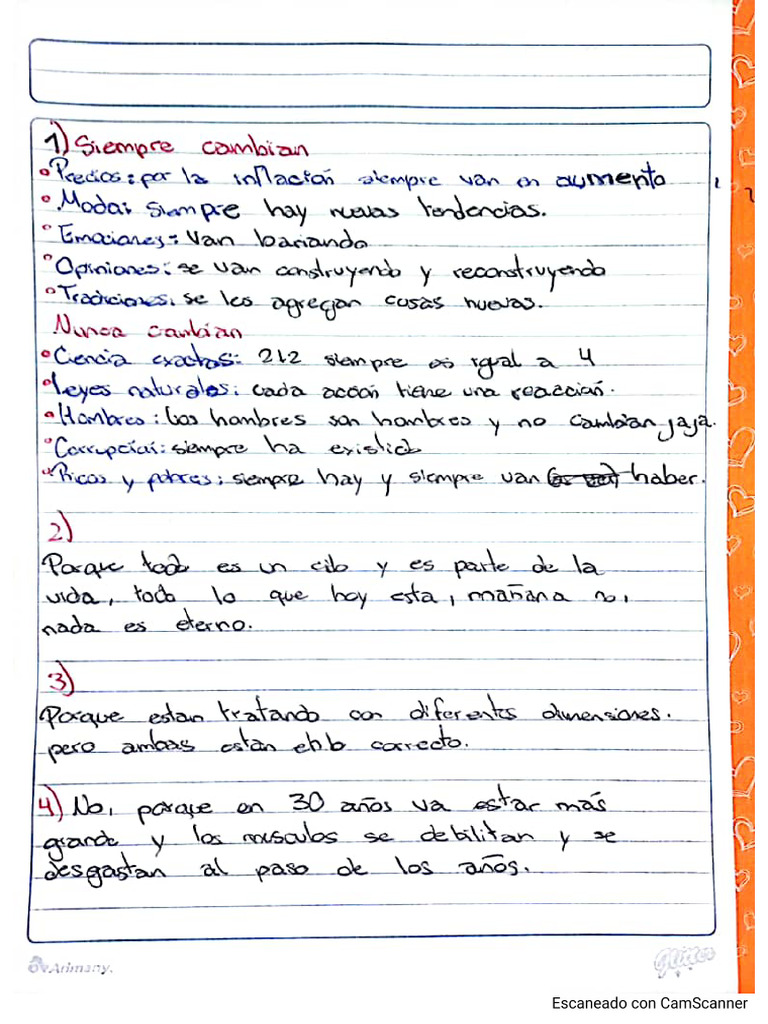 1) Siempre cambian
• Precios: por la inflación siempre van en aumento
• Moda: siempre hay nuevas tendencias.
• Emociones: van bariando
• Opiniones: se van construyendo y reconstruyendo
• Tradiciones: se les agregan cosas nuevas.
Nunca cambian
• Ciencia exactas: 2+2 siempre es igual a 4
• Leyes naturales: cada acción tiene una reacción.
• Hombres: Los hombres son hombres y no cambian jaja.
• Corrupción: siempre ha existido
• Ricos y pobres: siempre hay y siempre van haber.
2)
Porque todo es un ciclo y es parte de la
vida, todo lo que hoy esta, mañana no,
nada es eterno.
3)
Porque estan tratando con diferentes dimensiones.
pero ambas están en lo correcto.
4) No, porque en 30 años va estar más
grande y los musculos se debilitan y se
desgastan al paso de los años.
Arimany.
Glitter
Escaneado con CamScanner